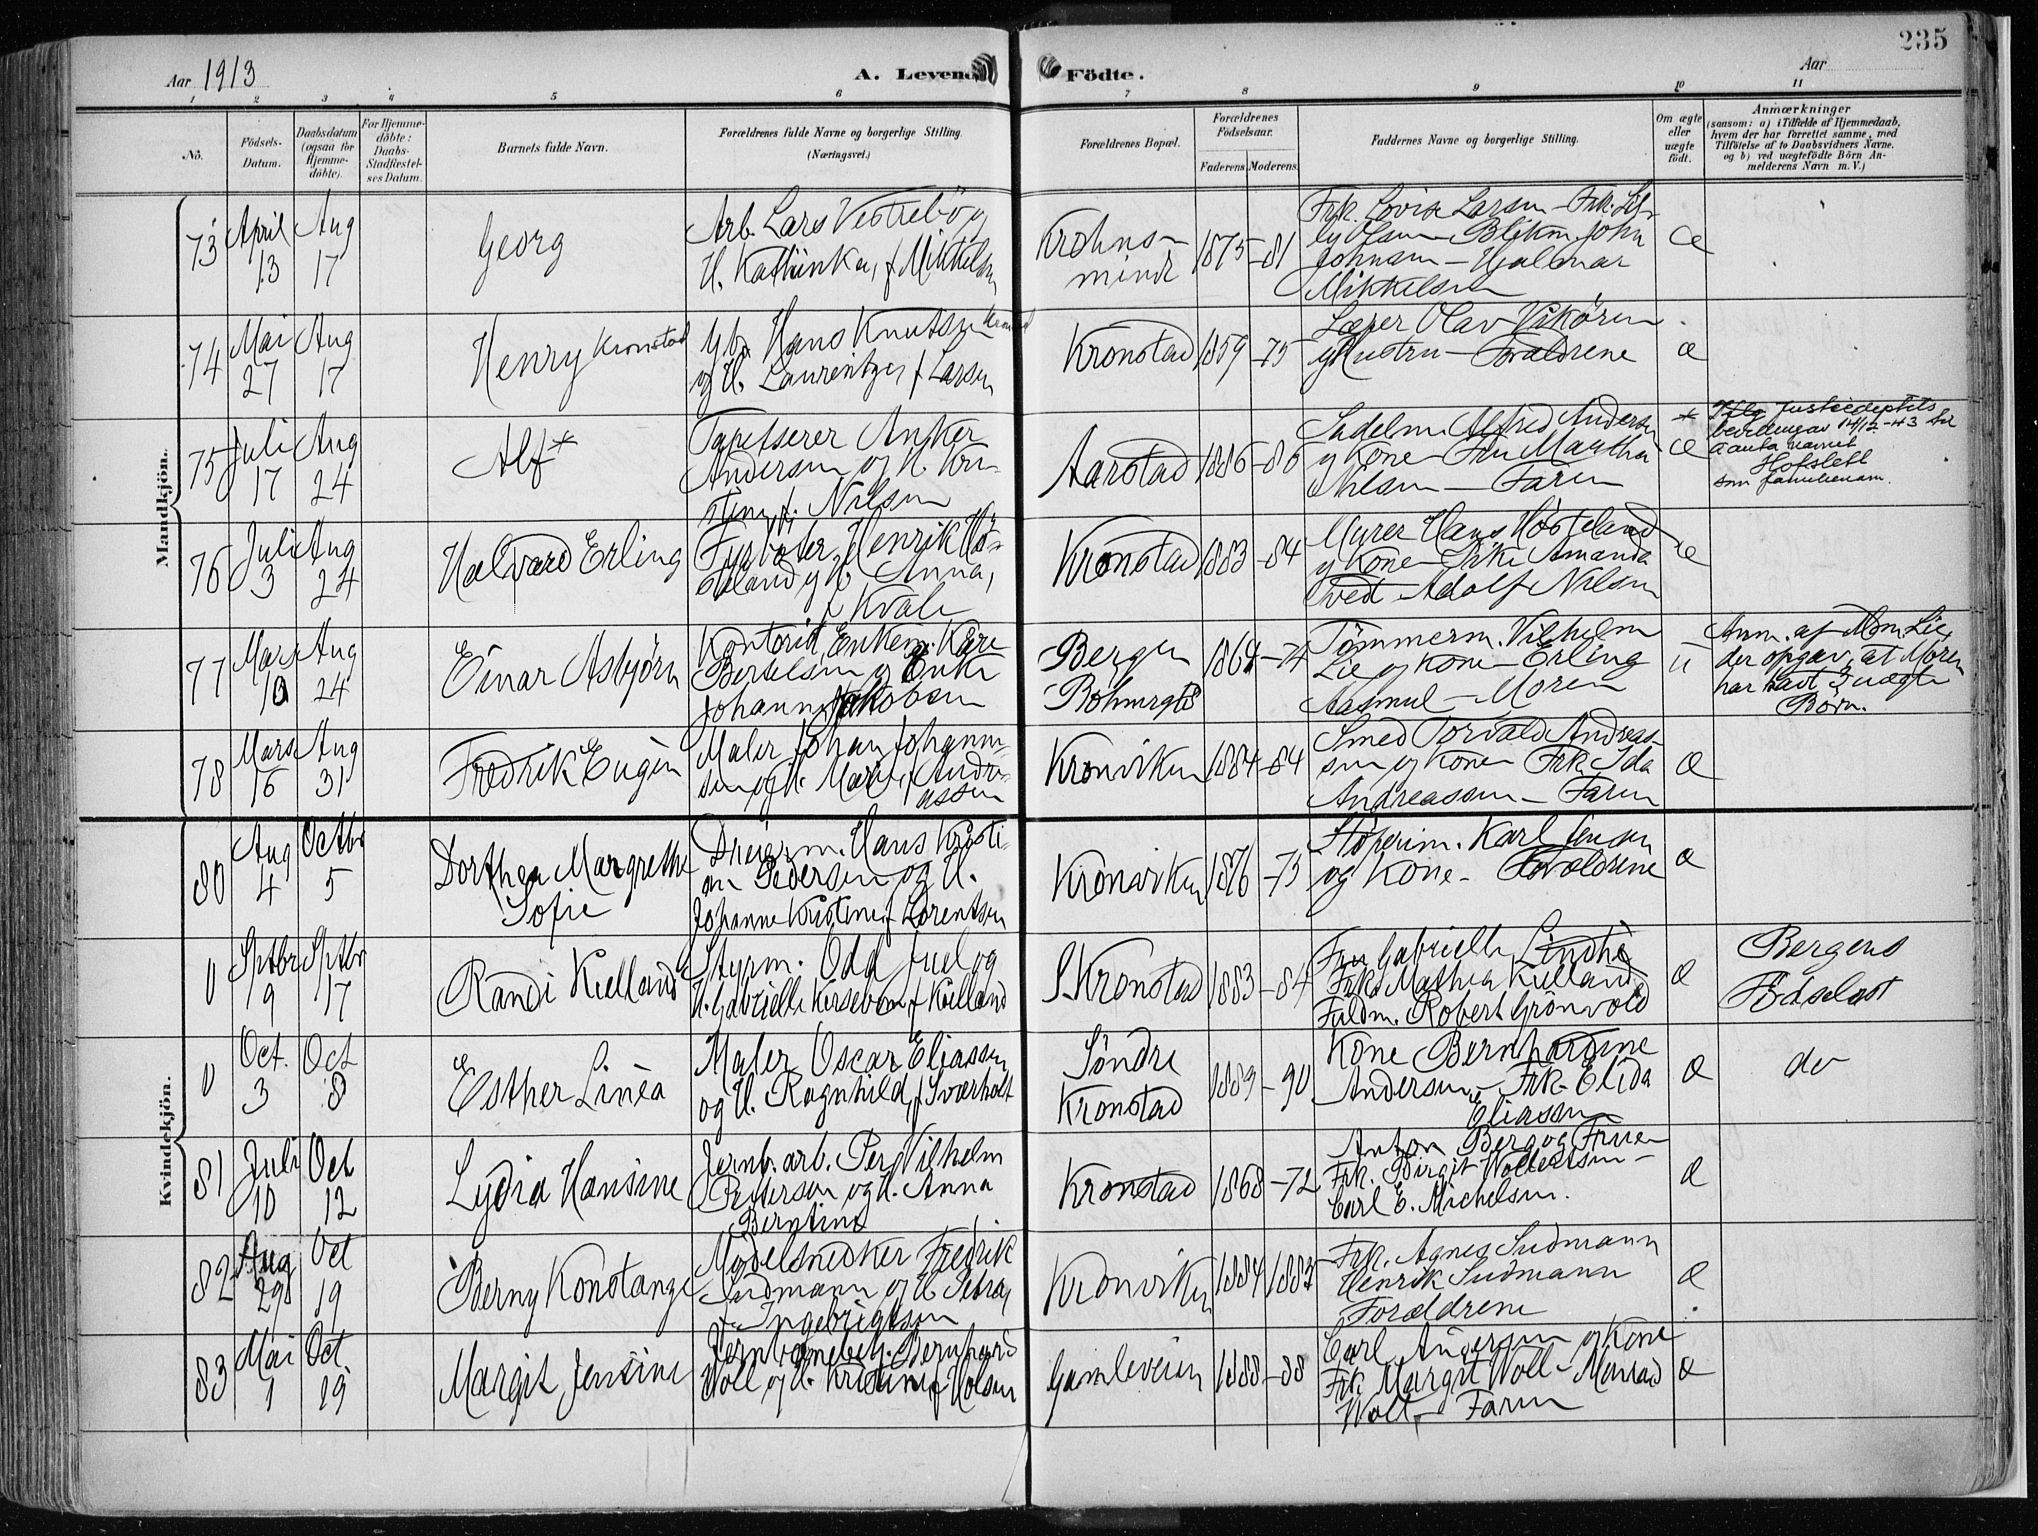 235
Aar 1913
A. Levende
Födte.
Aar
1 2 3 4 5 6 7 8 9 10 11
No.
Födsels-
Datum.
Daabsdatum
(ogsaa for
Hjemme-
döbte).
For Hjemme-
döbte:
Daabs-
Stadfæstel-
ses Datum.
Barnets fulde Navn.
Forældrenes fulde Navne og borgerlige Stilling.
(Næringsvei.)
Forældrenes Bopæl.
Forældrenes
Födselsaar.
Faderens Moderens.
Faddernes Navne og borgerlige Stilling.
Om ægte
eller
uægte
født.
Anmærkninger
(saasom: a) i Tilfælde af Hjemmedaab,
hvem der har forrettet samme, med
Tilföielse af to Daabsvidners Navne.
og b) ved uægtefödte Börn An-
melderens Navn m. V.)
Mandkjön.
73
April
13
Aug
17
Georg
Arb. Lars Vestrebö og
H. Kathinka, f Mikkelsen
Krohns-
minde
1875-81
Frk. Lovise Larsen - Frk.
Olsen - Blikm John
Johnsen - Hjalmar
Mikkelsen
æ
74
Mai
27
Aug
17
Henry Kronstad
Gb. Hans Knutsen Kronstad
og H. Laurentze, f Larsen
Kronstad
1859-75
Lærer Olav Vikören
og Hustru - Forældrene
æ
75
Juli
17
Aug
24
Alf *
Tapetserer Anker
Andersen og H. Kri-
stine f. Nilsen
Aarstad
1886-86
Sadelm Alfred Andersen
og Kone - Fru Martha
Nilsen - Faren
æ
* Ifla Justisdeptets
bevilling av 14/12-43 til
å anta navnet
Hofslett
som familienavn.
76
Juli
3
Aug
24
Halvard Erling
Fyrböter Henrik Hö-
steland og H. Anna,
f Kvale
Kronstad
1883-84
Murer Hans Hösteland
og Kone - Frk. Amanda
Tvedt - Adolf Nilsen
æ
77
Mars
10
Aug
24
Einar Asbjörn
Kontorist, Enkem. Kåre
Bertelsen og Enke
Johanne Jakobsen
Bergen
1864-74
Tömmerm. Vilhelm
Lie og Kone - Erling
Aasmul - Moren
u
Anm. af Mdm Lie,
der opgav, at Moren
har havt 3 uægte
Börn.
78
Mars
16
Aug
31
Fredrik Eugen
Maler Johan Johann-
sen og H. Marie, f Andre-
assen
Kronviken
1884-84
Smed Torvald Andreas-
sen og Kone - Frk. Ida
Andreassen - Faren
æ
Kvindekjön.
80
Aug
4
Octbr
5
Dorthea Margrethe
Sofie
Dreierm. Hans Kristi-
an Pedersen og H.
Johanne Kristine f Lorentsen
Kronviken
1876-75
Stöperim. Karl Jensen
og Kone - Forældrene
æ
0
Sptbr
9
Sptbr
17
Randi Kielland
Styrm. Odd Juel og
H. Gabrielle Kirsebom f Kielland
S. Kronstad
1883-84
Fru Gabrielle Lindhé
Frk. Mathea Kielland
Fuldm. Robert Grönvold
æ
Bergens
Födselsst
0
Oct.
3
Oct
8
Esther Linea
Maler Oscar Eliassen
og H. Ragnhild, f Sværholt
Söndre
Kronstad
1889-90
Kone Bernhardine
Andersen - Frk. Elida
Eliassen
æ
do
81
Juli
10
Oct
12
Lydia Hansine
Jernb. arb. Per Vilhelm
Petterson og H. Anna
Berntine
Kronstad
1868-72
Anton Berg og Frue -
Frk. Birgit Wollertsen -
Carl E. Michelsen.
æ
82
Aug
29
Oct
19
Berny Konstange
Modelsnedker Fredrik
Sudmann og H. Petra,
f. Ingebrigtsen
Kronviken
1884 1883
Frk. Agnes Sudmann
Henrik Sudmann
Forældrene
æ
83
Mai
1
Oct
19
Margit Jensine
Jernbanebetj. Bernhard
Woll og H. Kristine f Holsen
Gamleveien
1888-88
Carl Andersen og Kone
Frk Margit Woll - Monrad
Woll - Faren
æ